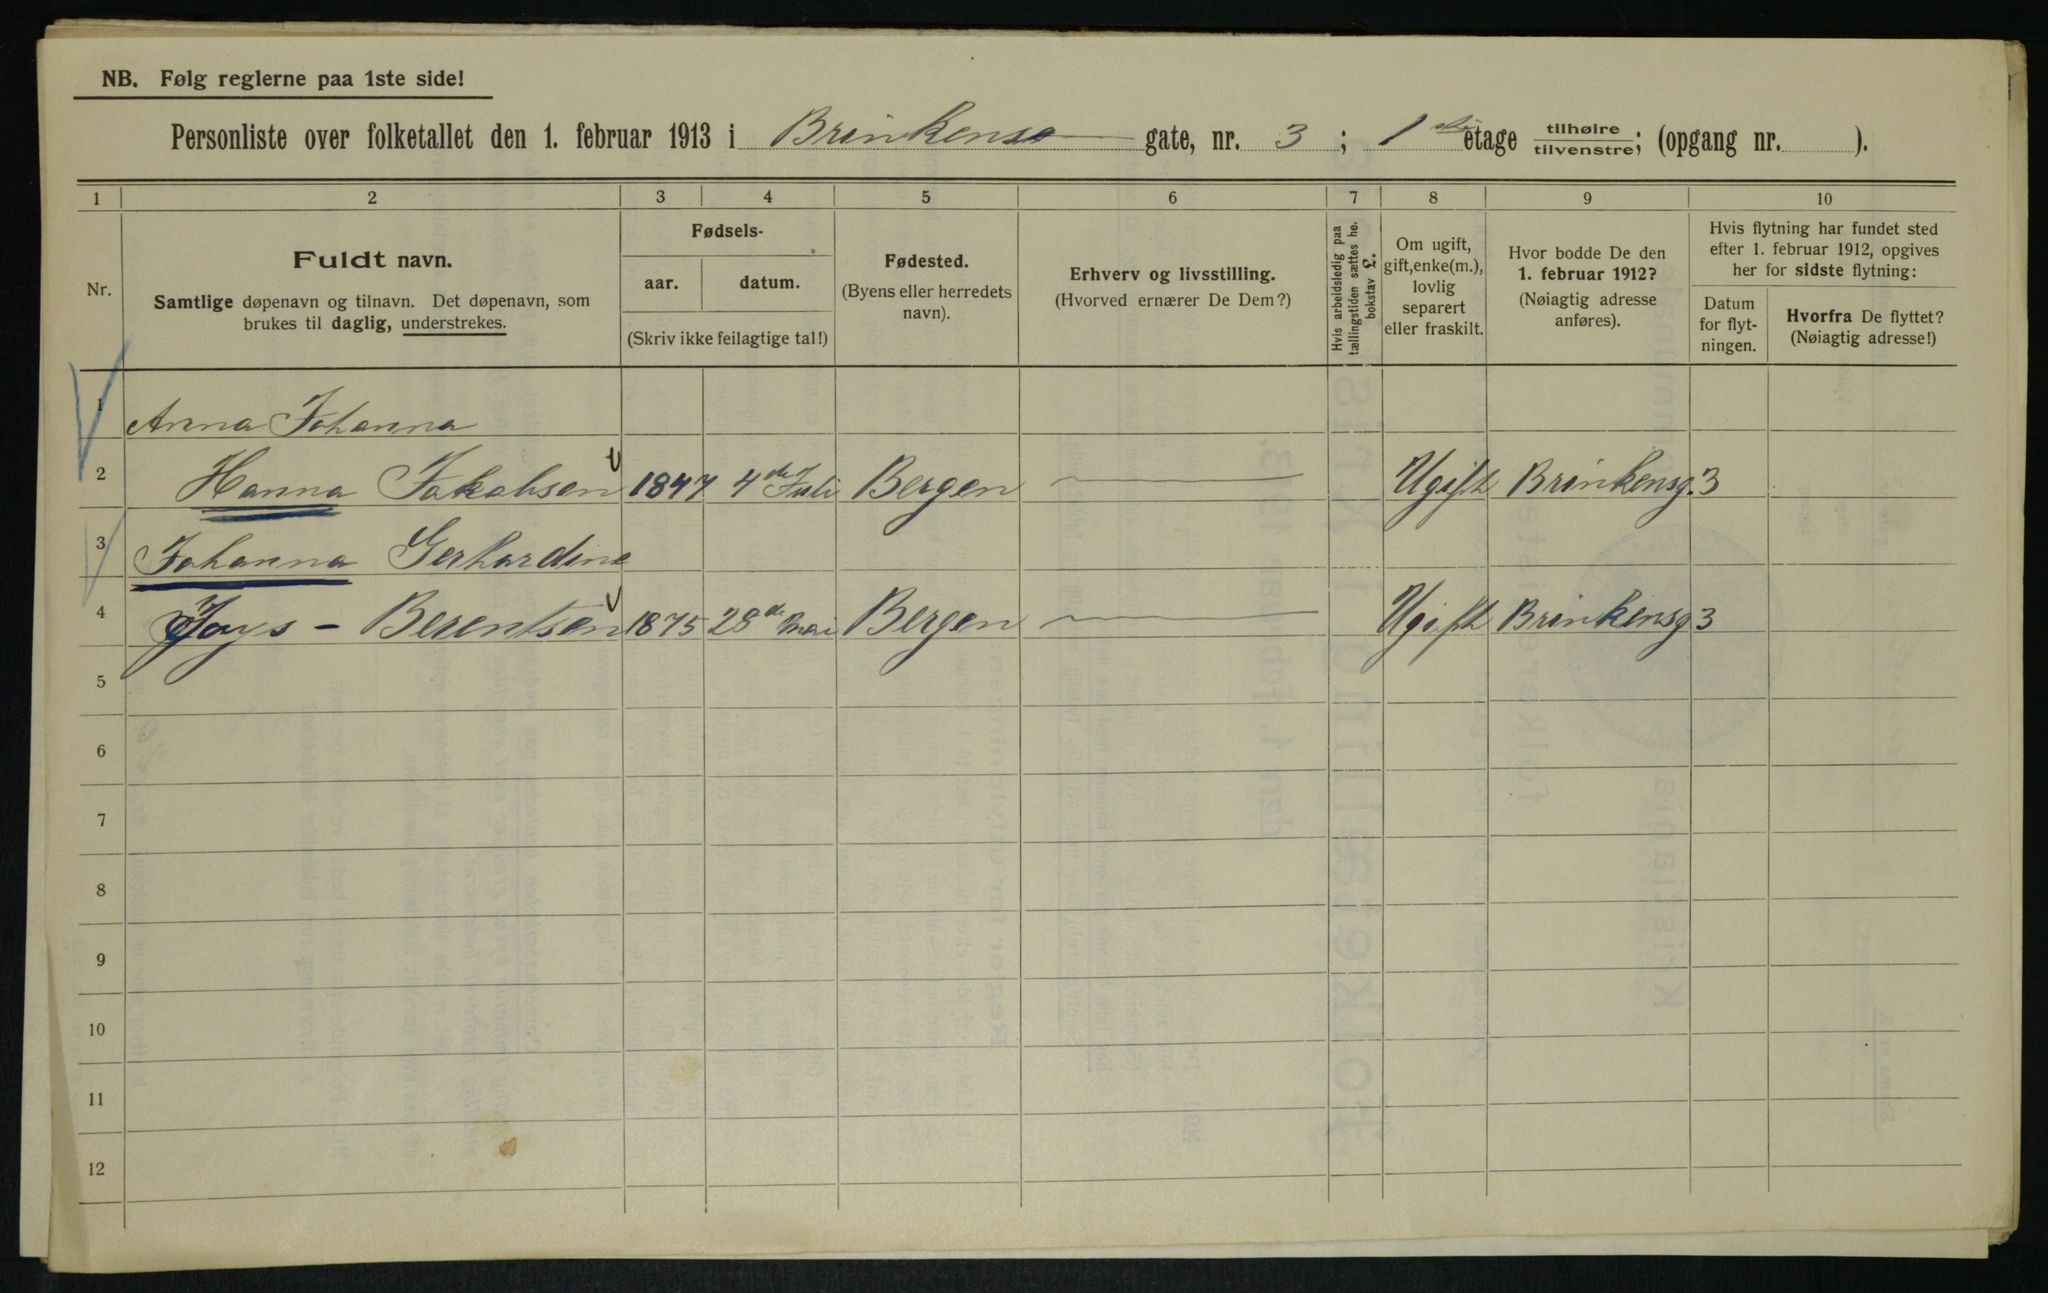 NB. Følg reglerne paa 1ste side!
Personliste over folketallet den 1. februar 1913 i Brinkens gate, nr. 3; 1ste etage tilhøire tilvenstre; (opgang nr. ).
1 2 3 4 5 6 7 8 9 10
Nr.
Fuldt navn.
Samtlige døpenavn og tilnavn. Det døpenavn, som
brukes til daglig, understrekes.
Fødsels-
aar. datum.
(Skriv ikke feilagtige tal!)
Fødested.
(Byens eller herredets
navn).
Erhverv og livsstilling.
(Hvorved ernærer De Dem?)
Hvis arbeidsledig paa
tællingstiden sættes he.
bokstav L.
Om ugift,
gift, enke(m.),
lovlig
separert
eller fraskilt.
Hvor bodde De den
1. februar 1912?
(Nøiagtig adresse
anføres).
Hvis flytning har fundet sted
efter 1. februar 1912, opgives
her for sidste flytning:
Datum
for flyt-
ningen.
Hvorfra De flyttet?
(Nøiagtig adresse!)
1 Anna Johanna
2 Hanna Jakobsen 1847 4de Juli Bergen Ugift Brinkensg. 3
3 Johanna Gerhardine
4 Joys - Berentsen 1875 28de Mai Bergen Ugift Brinkensg 3
5
6
7
8
9
10
11
12